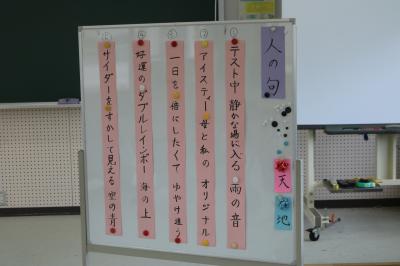 人の句
① テスト中 静かな場に入る 雨の音
② アイスティー 母と私の オリジナル
③ 一日を 倍にしたくて ゆやけ追う
④ 好運の ダブルレインボー 海の上
⑤ サイダーを すかして見える 空の青
天
地